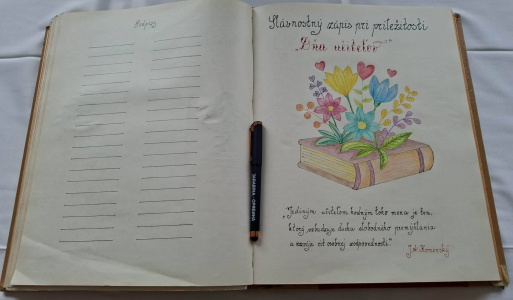 Slávnostný zápis pri príležitosti
„Dňa učiteľov“
„Jediným učiteľom hodným toho mena je ten,
ktorý vzbudzuje ducha slobodného premýšľania
a rozvíja cit osobnej zodpovednosti.“
J.A. Komenský